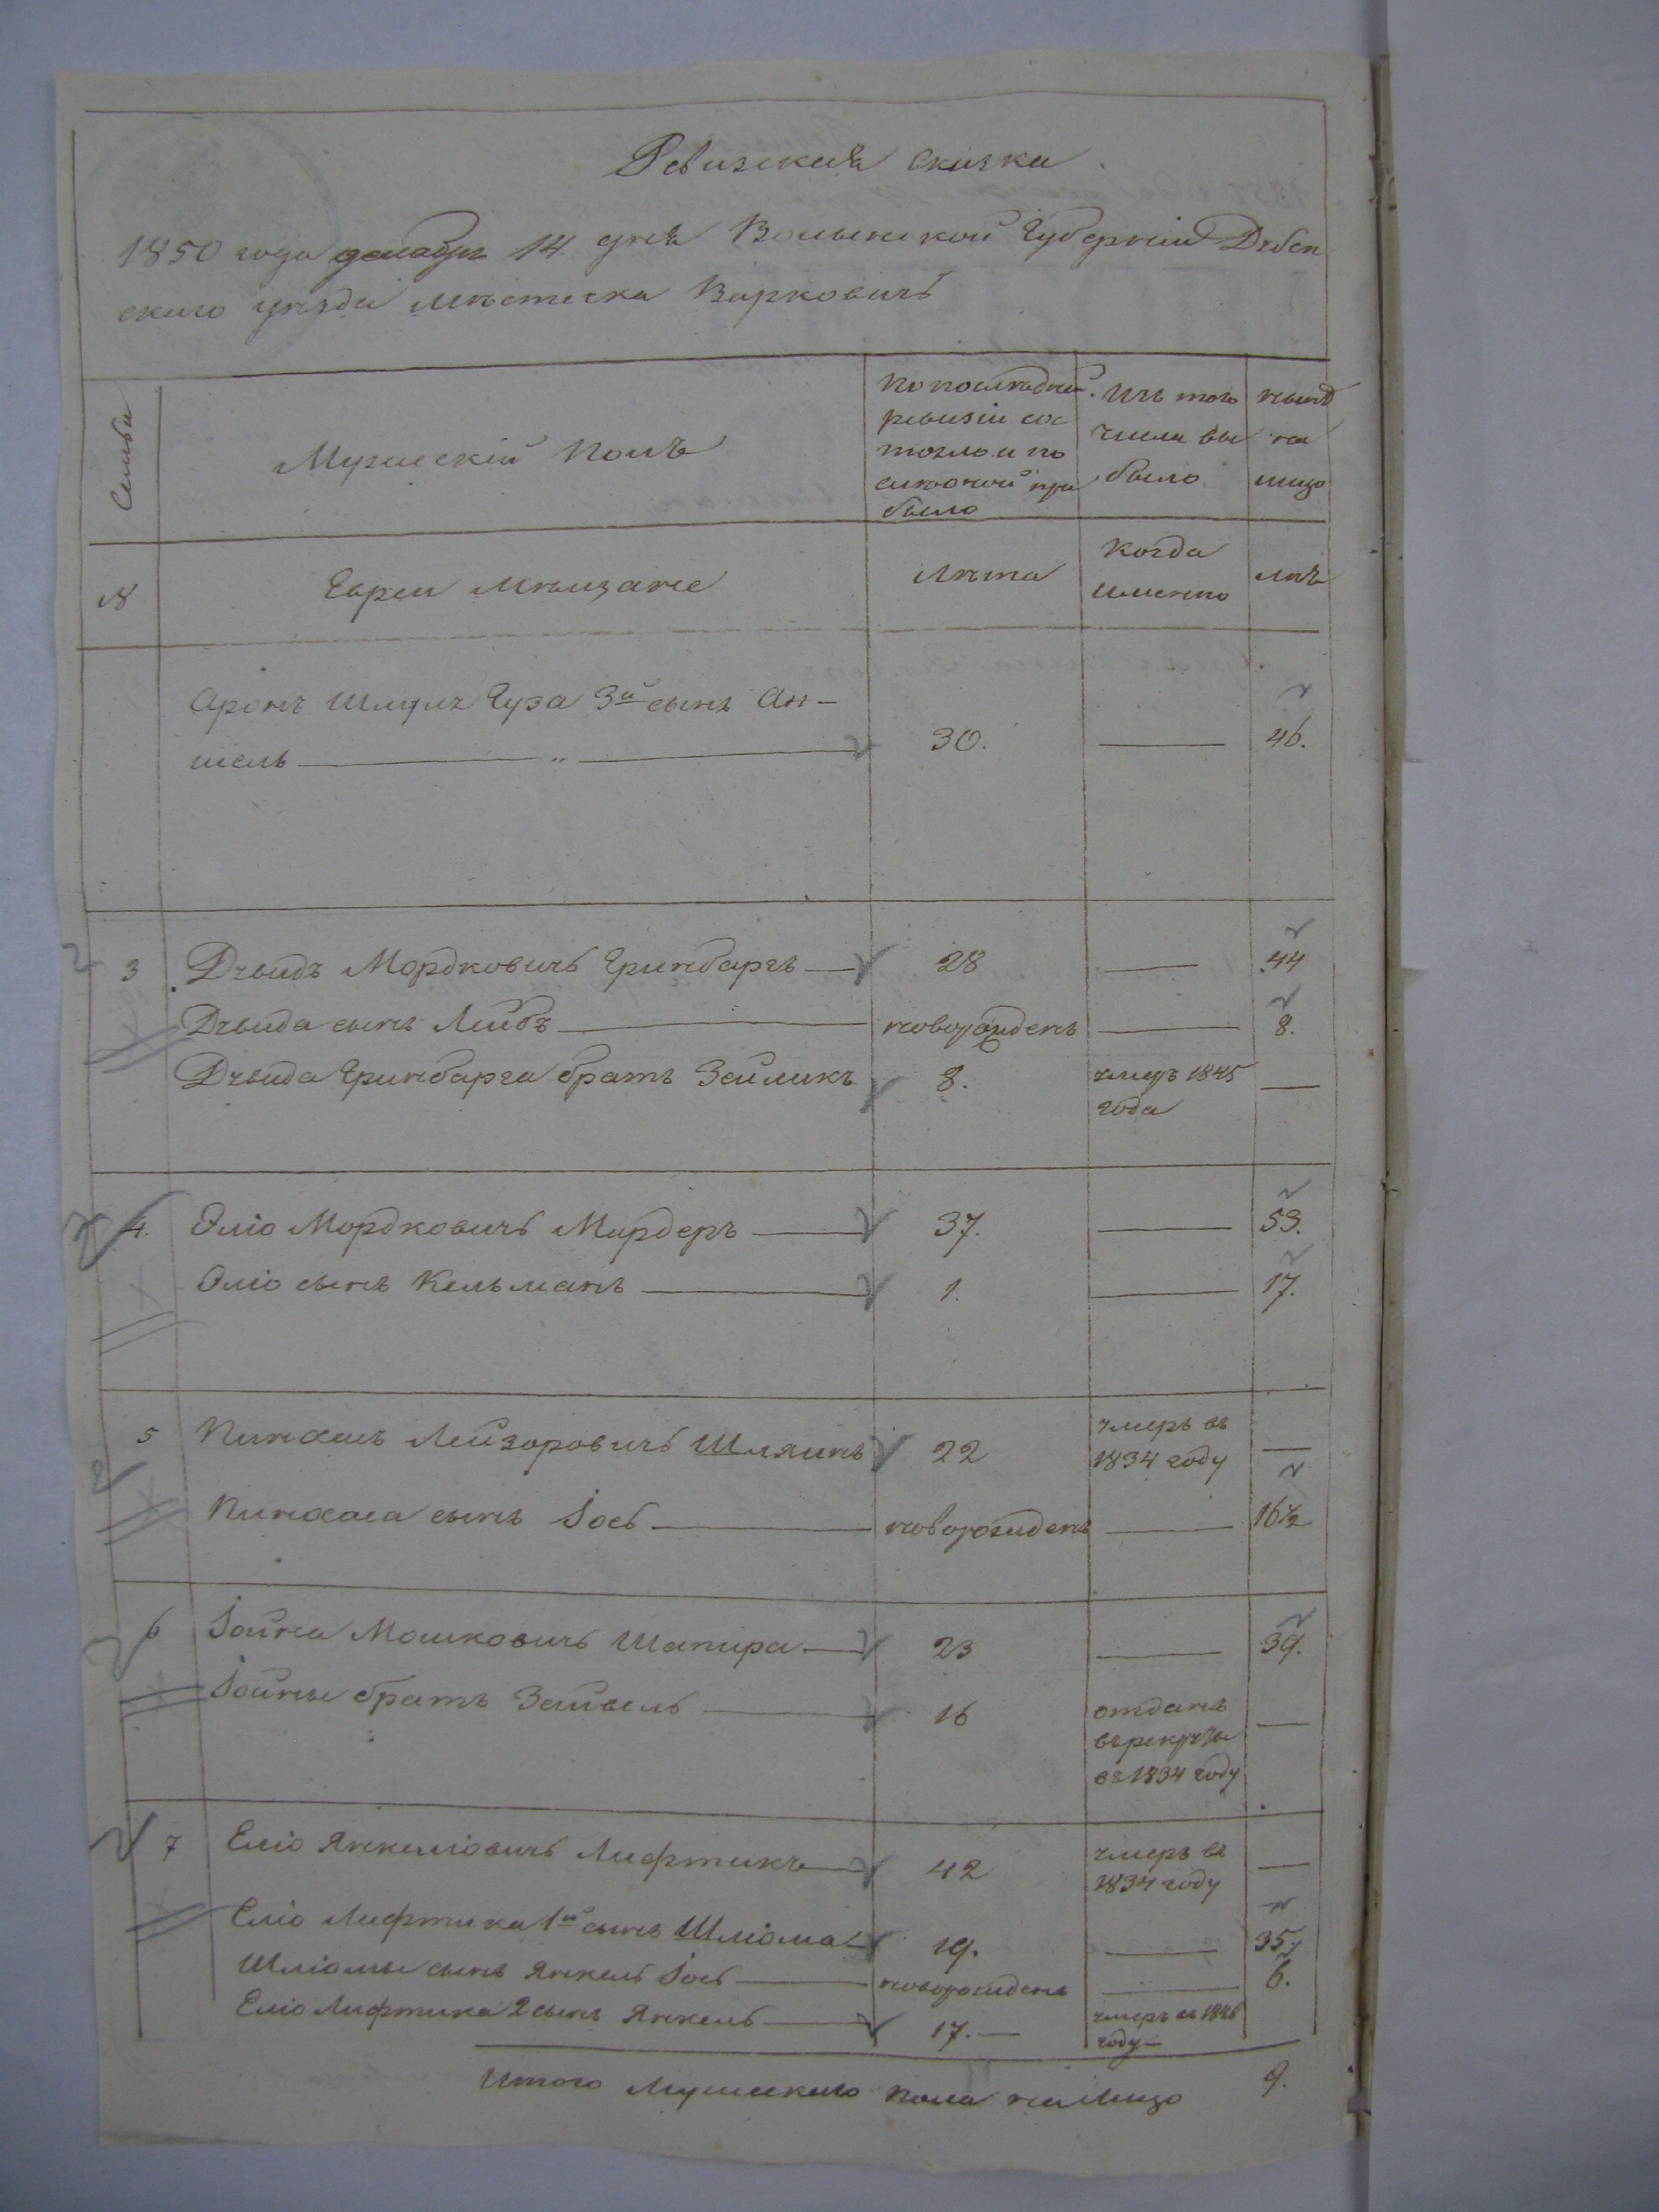 Ревизская сказка
1850 года декабря 14 дня Волынской Губерніи Дубен
скаго уезда мѣстечка Варковичъ
Семьи
Мужескій полъ
По последней
ревизіи сос
тояло и по
слѣ оной при
было
Изъ того
числа вы
было
нынѣ
на
лицо
№
Евреи Мѣщане
Лѣта
Когда
именно
лѣтъ
Аронъ Шмуля Гуза 3й сынъ Ан-
шель — " — 30. — 46.
3 Дувидъ Мордковичъ Гринбаргъ — 28 — 44
Дувида сынъ Лейбъ — новорожденъ — 8.
Дувида Гринбарга братъ Зейликъ 8. умеръ 1845 —
года
4. Эліо Мордковичъ Мардеръ — 37. — 53.
Эліо сынъ Кельманъ — 1. — 17.
5 Пинхасъ Лейзоровичъ Шляинъ 22 умеръ въ —
1834 году
Пинхаса сынъ Іось — новорожденъ — 16½
6 Іойна Мошковичъ Шапира — 23 — 39.
Іойны братъ Зайвель — 16 отданъ —
въ рекруты
въ 1834 году
7 Еліо Янкеліовичъ Лифтикъ — 42 умеръ въ —
1834 году
Еліо Лифтика 1й сынъ Шліома — 19. — 35
Шліомы сынъ Янкель Іось — новорожденъ — 6.
Еліо Лифтика 2 сынъ Янкель — 17. — умеръ въ 1846
году —
Итого Мужескаго пола на лицо 9.